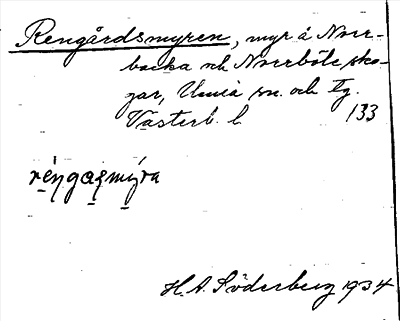 Rengårdsmyren, myr å Norr-
backa och Norrböle sko-
gar, Umeå sn. och tg.
Västerb. l. 133
réŋgaʂmýra
H. A. Söderberg 1934